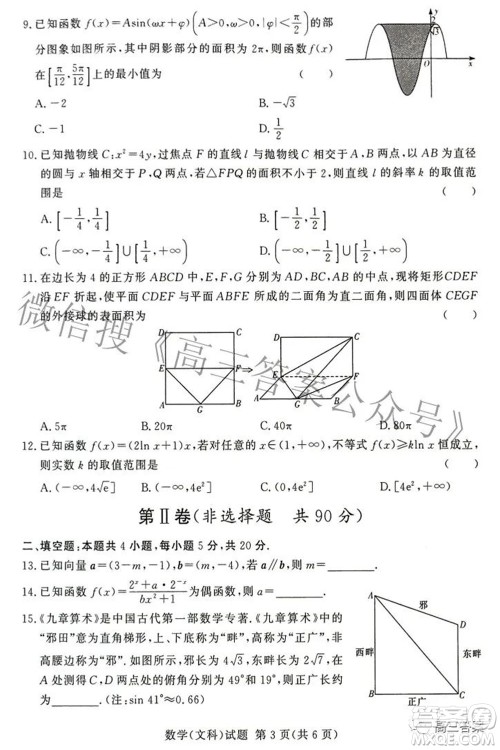 9. 已知函数 f(x)=Asin(ωx+φ)(A>0,ω>0,|φ|<π/2)的部
分图象如图所示,其中阴影部分的面积为 2π,则函数 f(x)
在[π/12,5π/12]上的最小值为 ( )
A. -2 B. -√3
C. -1 D. 1/2
y
2
√3
O
x
10. 已知抛物线 C:x²=4y,过焦点 F 的直线 l 与抛物线 C 交于 A,B 两点,以 AB 为直径
的圆与 x 轴相交于 P,Q 两点,若△FPQ 的面积不小于 2,则直线 l 的斜率 k 的取值范
围是 ( )
A. [-1/4,1/4] B. [-1/2,1/2]
C. (-∞,-1/2]∪[1/2,+∞) D. (-∞,-1/4]∪[1/4,+∞)
11. 在边长为 4 的正方形 ABCD 中,E,F,G 分别为 AD,BC,AB 的中点,现将矩形 CDEF
沿 EF 折起,使平面 CDEF 与平面 ABFE 所成的二面角为直二面角,则四面体 CEGF
的外接球的表面积为 ( )
D C
E F
A G B
D C
E F
A G B
A. 5π B. 20π C. 40π D. 80π
12. 已知函数 f(x)=(2ln x+1)x,若对任意的 x∈(1,+∞),不等式 f(x)≥kln x 恒成立,
则实数 k 的取值范围是 ( )
A. (-∞,4√e] B. (-∞,4e²] C. (0,4e²] D. [4e²,+∞)
第Ⅱ卷(非选择题 共 90 分)
二、填空题:本题共 4 小题,每小题 5 分,共 20 分.
13. 已知向量 a=(3-m,-1),b=(-m,-4),若 a∥b,则 m=______.
14. 已知函数 f(x)=(2ˣ+a·2⁻ˣ)/(bx²+1) 为偶函数,则 a=______.
15. 《九章算术》是中国古代第一部数学专著.《九章算术》中的
“邪田”意为直角梯形,上、下底称为“畔”,高称为“正广”,非高
腰边称为“邪”.如图所示,邪长为 4√3,东畔长为 2√7,在 A
处测得 C,D 两点处的俯角分别为 49°和 19°,则正广长约
为______.(注:sin 41°≈0.66)
A
邪
D
西畔
东畔
B
正广
C
数学(文科)试题 第 3 页(共 6 页)
微信搜《高三答案公众号》
高三答案